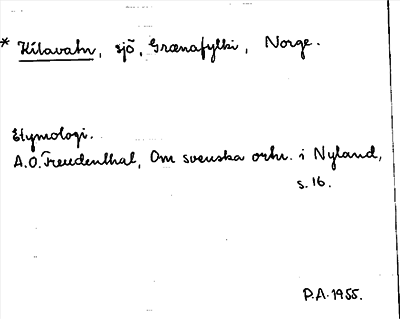 * Kílavatn, sjö, Grænafylki, Norge.
Etymologi.
A.O. Freudenthal, Om svenska ortn. i Nyland,
s. 16.
P.A. 1955.